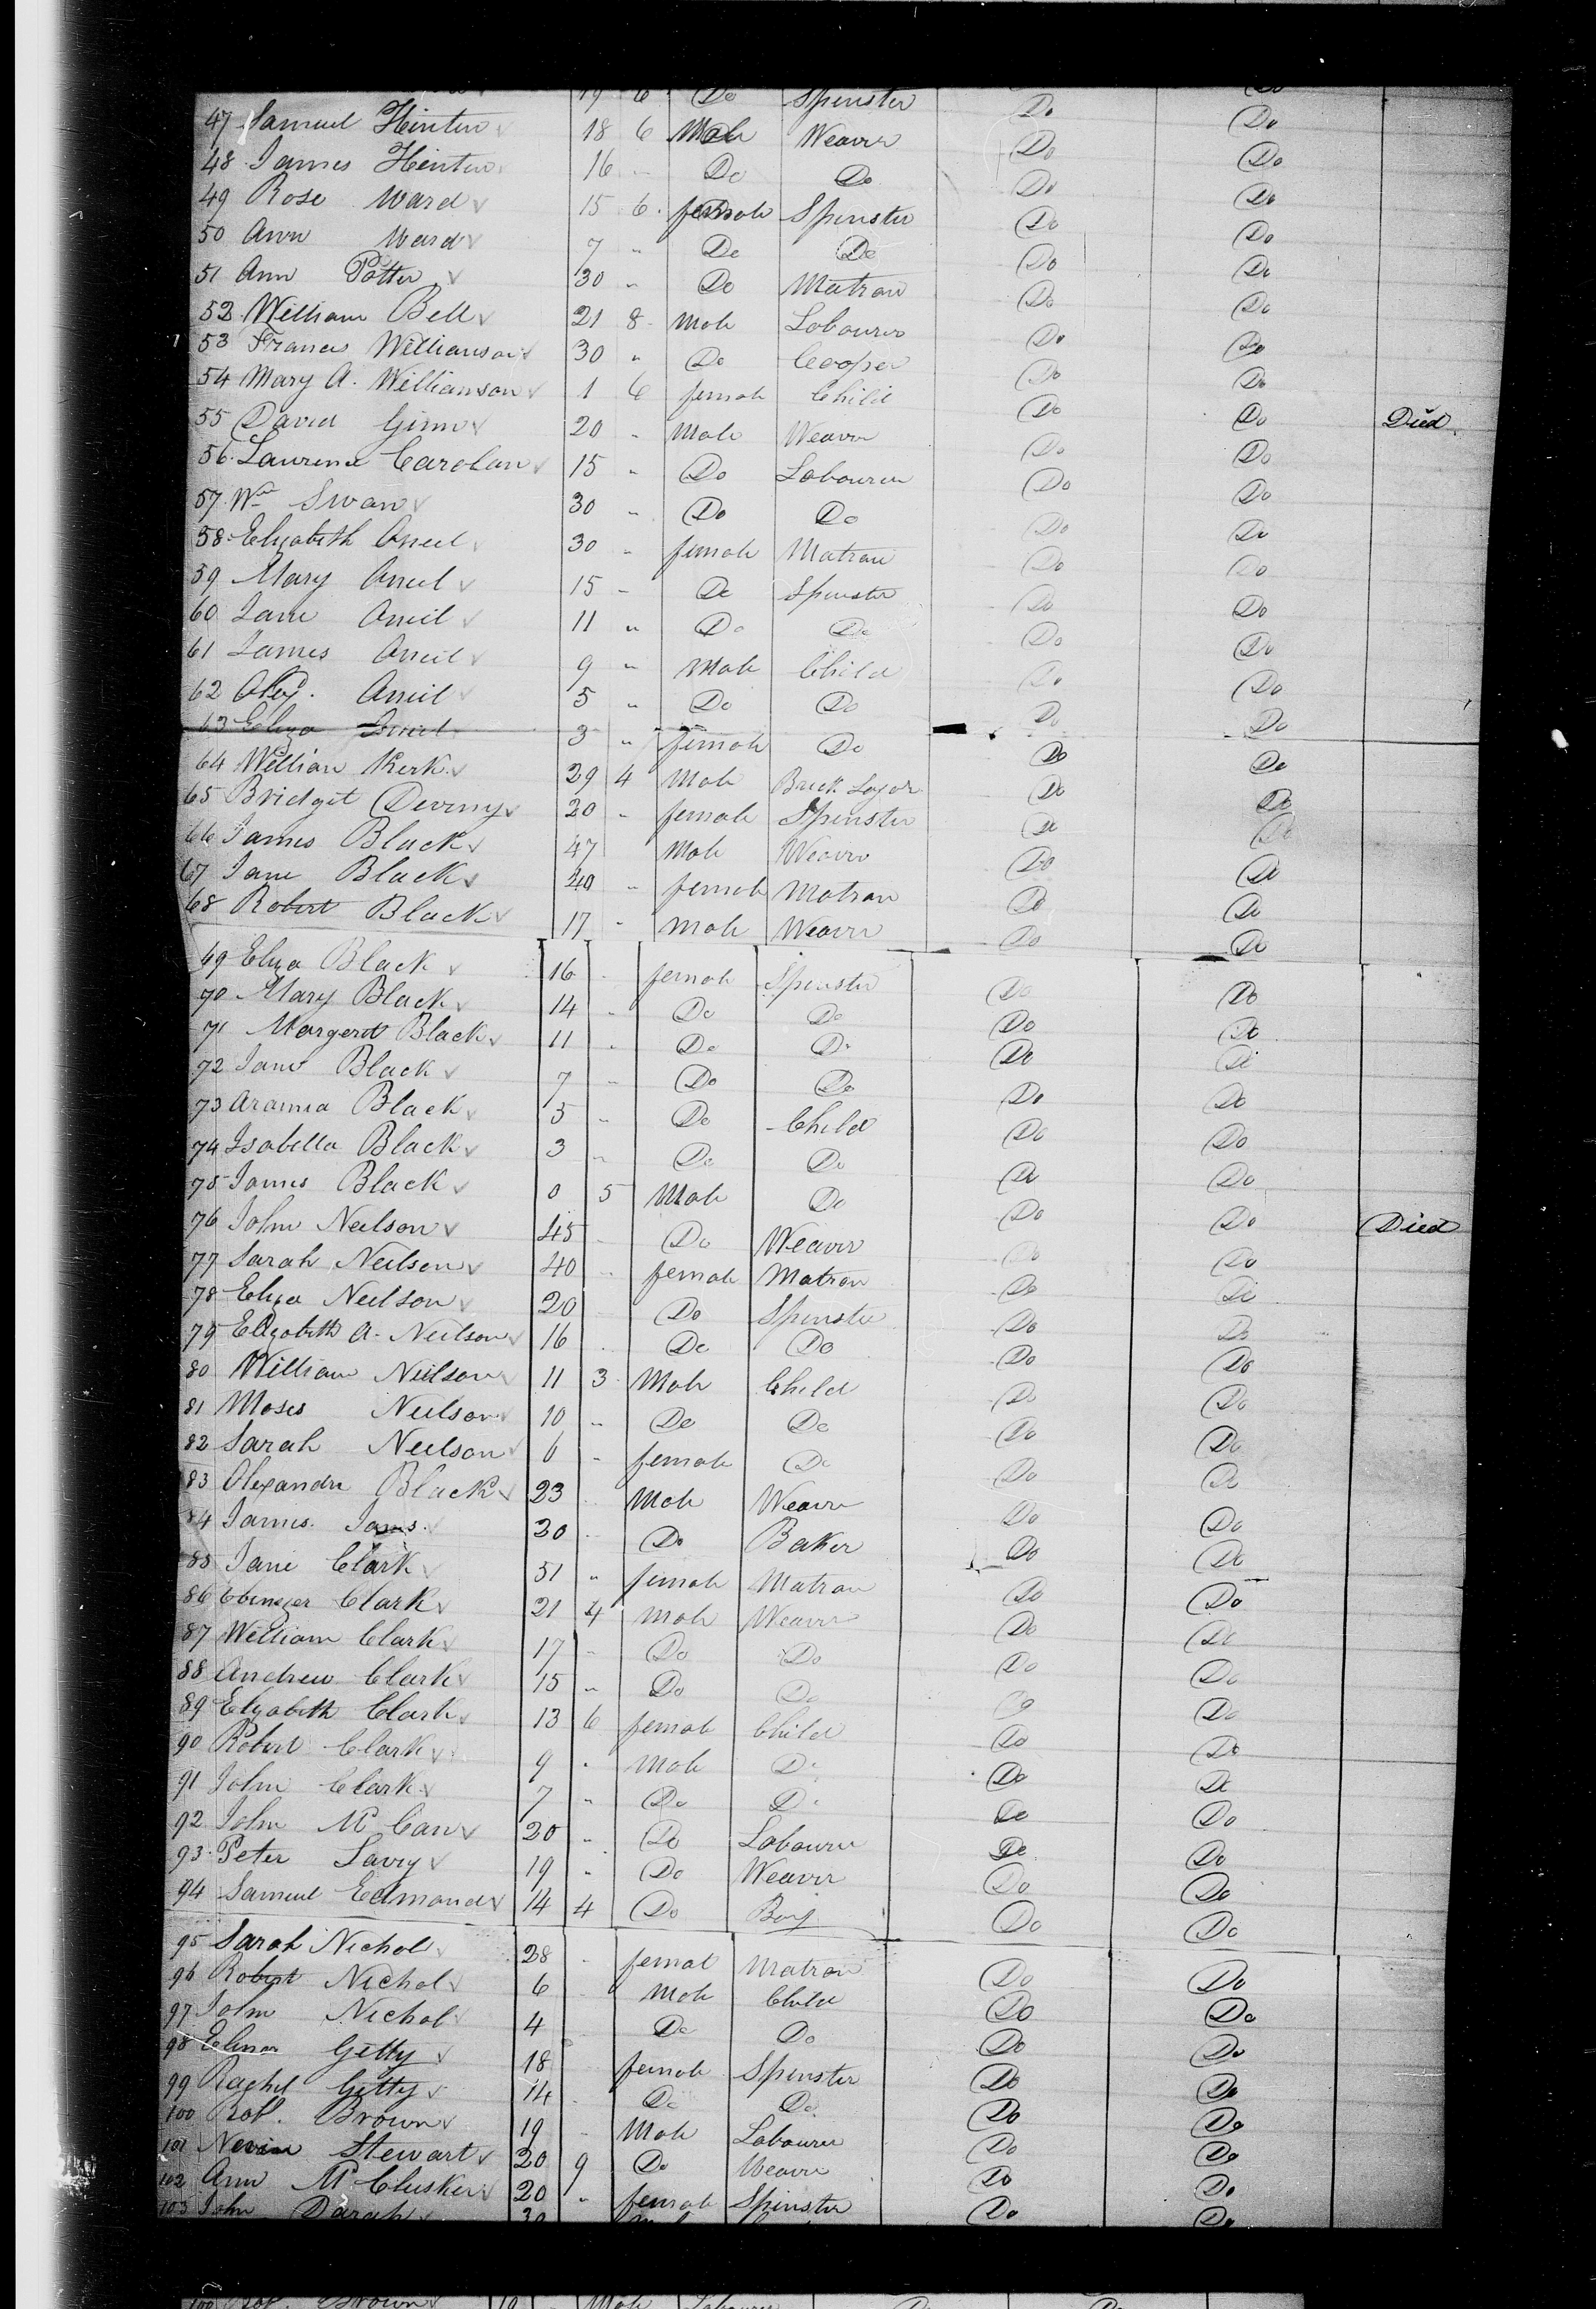 19 6 Do Spinster Do Do
47 Samuel Hinton 18 6 Male Weaver Do Do
48 James Hinton 16 " Do Do Do Do
49 Rose Ward 15 6 female Spinster Do Do
50 Ann Ward 7 " Do Do Do Do
51 Ann Potter 30 " Do Matron Do Do
52 William Bell 21 8 Male Labourer Do Do
53 Frances Williamson 30 " Do Cooper Do Do
54 Mary A. Williamson 1 6 female Child Do Do
55 David Ginn 20 " Male Weaver Do Do Died
56 Laurence Carolan 15 " Do Labourer Do Do
57 Wm Swan 30 " Do Do Do Do
58 Elizabeth Oneil 30 " female Matron Do Do
59 Mary Oneil 15 " Do Spinster Do Do
60 Jane Oneil 11 " Do Do Do Do
61 James Oneil 9 " Male Child Do Do
62 Alex. Oneil 5 " Do Do Do Do
63 Eliza Oneil 3 " female Do Do Do
64 William Kirk 29 4 Male Brick Layer Do Do
65 Bridget Deverny 20 " female Spinster Do Do
66 James Black 47 Male Weaver Do Do
67 Jane Black 40 " female Matron Do Do
68 Robert Black 17 " Male Weaver Do Do
69 Eliza Black 16 " female Spinster Do Do
70 Mary Black 14 " Do Do Do Do
71 Margeret Black 11 " Do Do Do Do
72 Jane Black 7 " Do Do Do Do
73 Black 5 " Do Child Do Do
74 Isabella Black 3 " Do Do Do Do
75 James Black 0 5 Male Do Do Do
76 John Neilson 45 Do Weaver Do Do Died
77 Sarah Neilson 40 " female Matron Do Do
78 Eliza Neilson 20 Do Spinster Do Do
79 Elizabeth A. Neilson 16 Do Do Do Do
80 William Neilson 11 3 Male Child Do Do
81 Moses Neilson 10 " Do Do Do Do
82 Sarah Neilson 6 " female Do Do Do
83 Alexander Black 23 Male Weaver Do Do
84 James 20 " Do Baker Do Do
85 Jane Clark 51 " female Matron Do Do
86 Ebenezer Clark 21 4 Male Weaver Do Do
87 William Clark 17 " Do Do Do Do
88 Andrew Clark 15 " Do Do Do Do
89 Elizabeth Clark 13 6 female Child Do Do
90 Robert Clark 9 " Male Do Do Do
91 John Clark 7 " Do Do Do Do
92 John McCan 20 " Do Labourer Do Do
93 Peter Savry 19 " Do Weaver Do Do
94 Samuel Edmonds 14 4 Do Boy Do Do
95 Sarah Nichol 28 female Matron Do Do
96 Robert Nichol 6 Male Child Do Do
97 John Nichol 4 Do Do Do Do
98 Elinor Getty 18 female Spinster Do Do
99 Rachel Getty 14 Do Do Do Do
100 Rob. Brown 19 Male Labourer Do Do
101 Nevin Stewart 20 9 Do Weaver Do Do
102 Ann McClusker 20 " female Spinster Do Do
103 John Darah 30 Do Do
100 Rob. Brown 19 Male Labourer Do Do